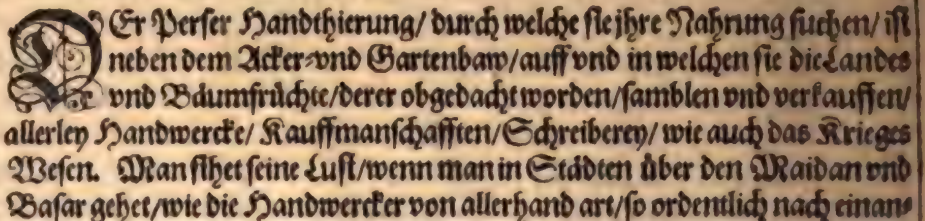 DEr Perser Handthierung/ durch welche sie jhre Nahrung suchen/ ist
neben dem Acker-vnd Gartenbaw/auff vnd in welchen sie die Landes
vnd Bäumfrüchte/derer obgedacht worden/samblen vnd verkauffen/
allerley Handwercke/ Kauffmanschafften/Schreiberey/ wie auch das Krieges
Wesen. Man sihet seine Lust/wenn man in Städten über den Maidan vnd
Basar gehet/wie die Handwercker von allerhand art/so ordentlich nach einan-